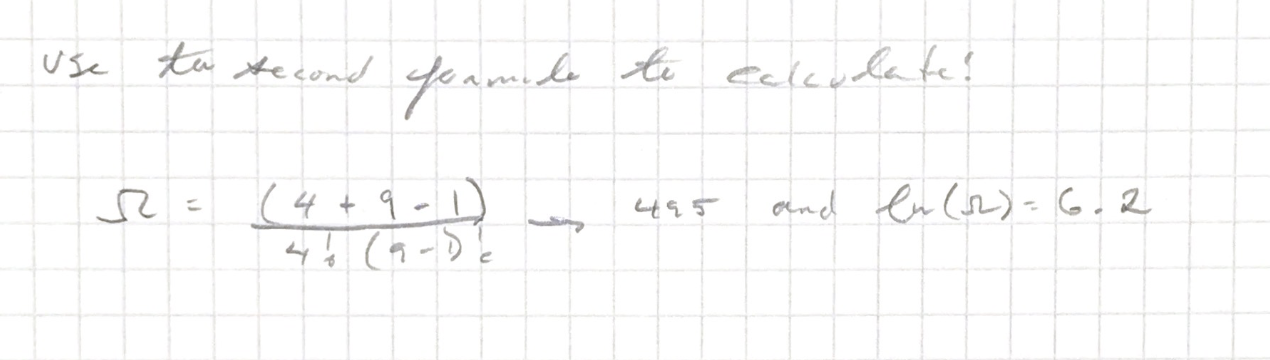 use the second formula to calculate!
Ω = (4 + 9 - 1) / 4! (9-1)! → 495 and ln(Ω) = 6.2